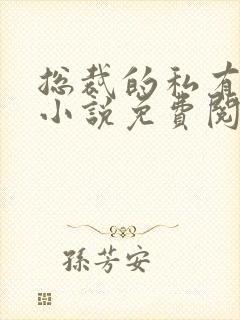 总裁的私有
小说免费阅
孫芳安